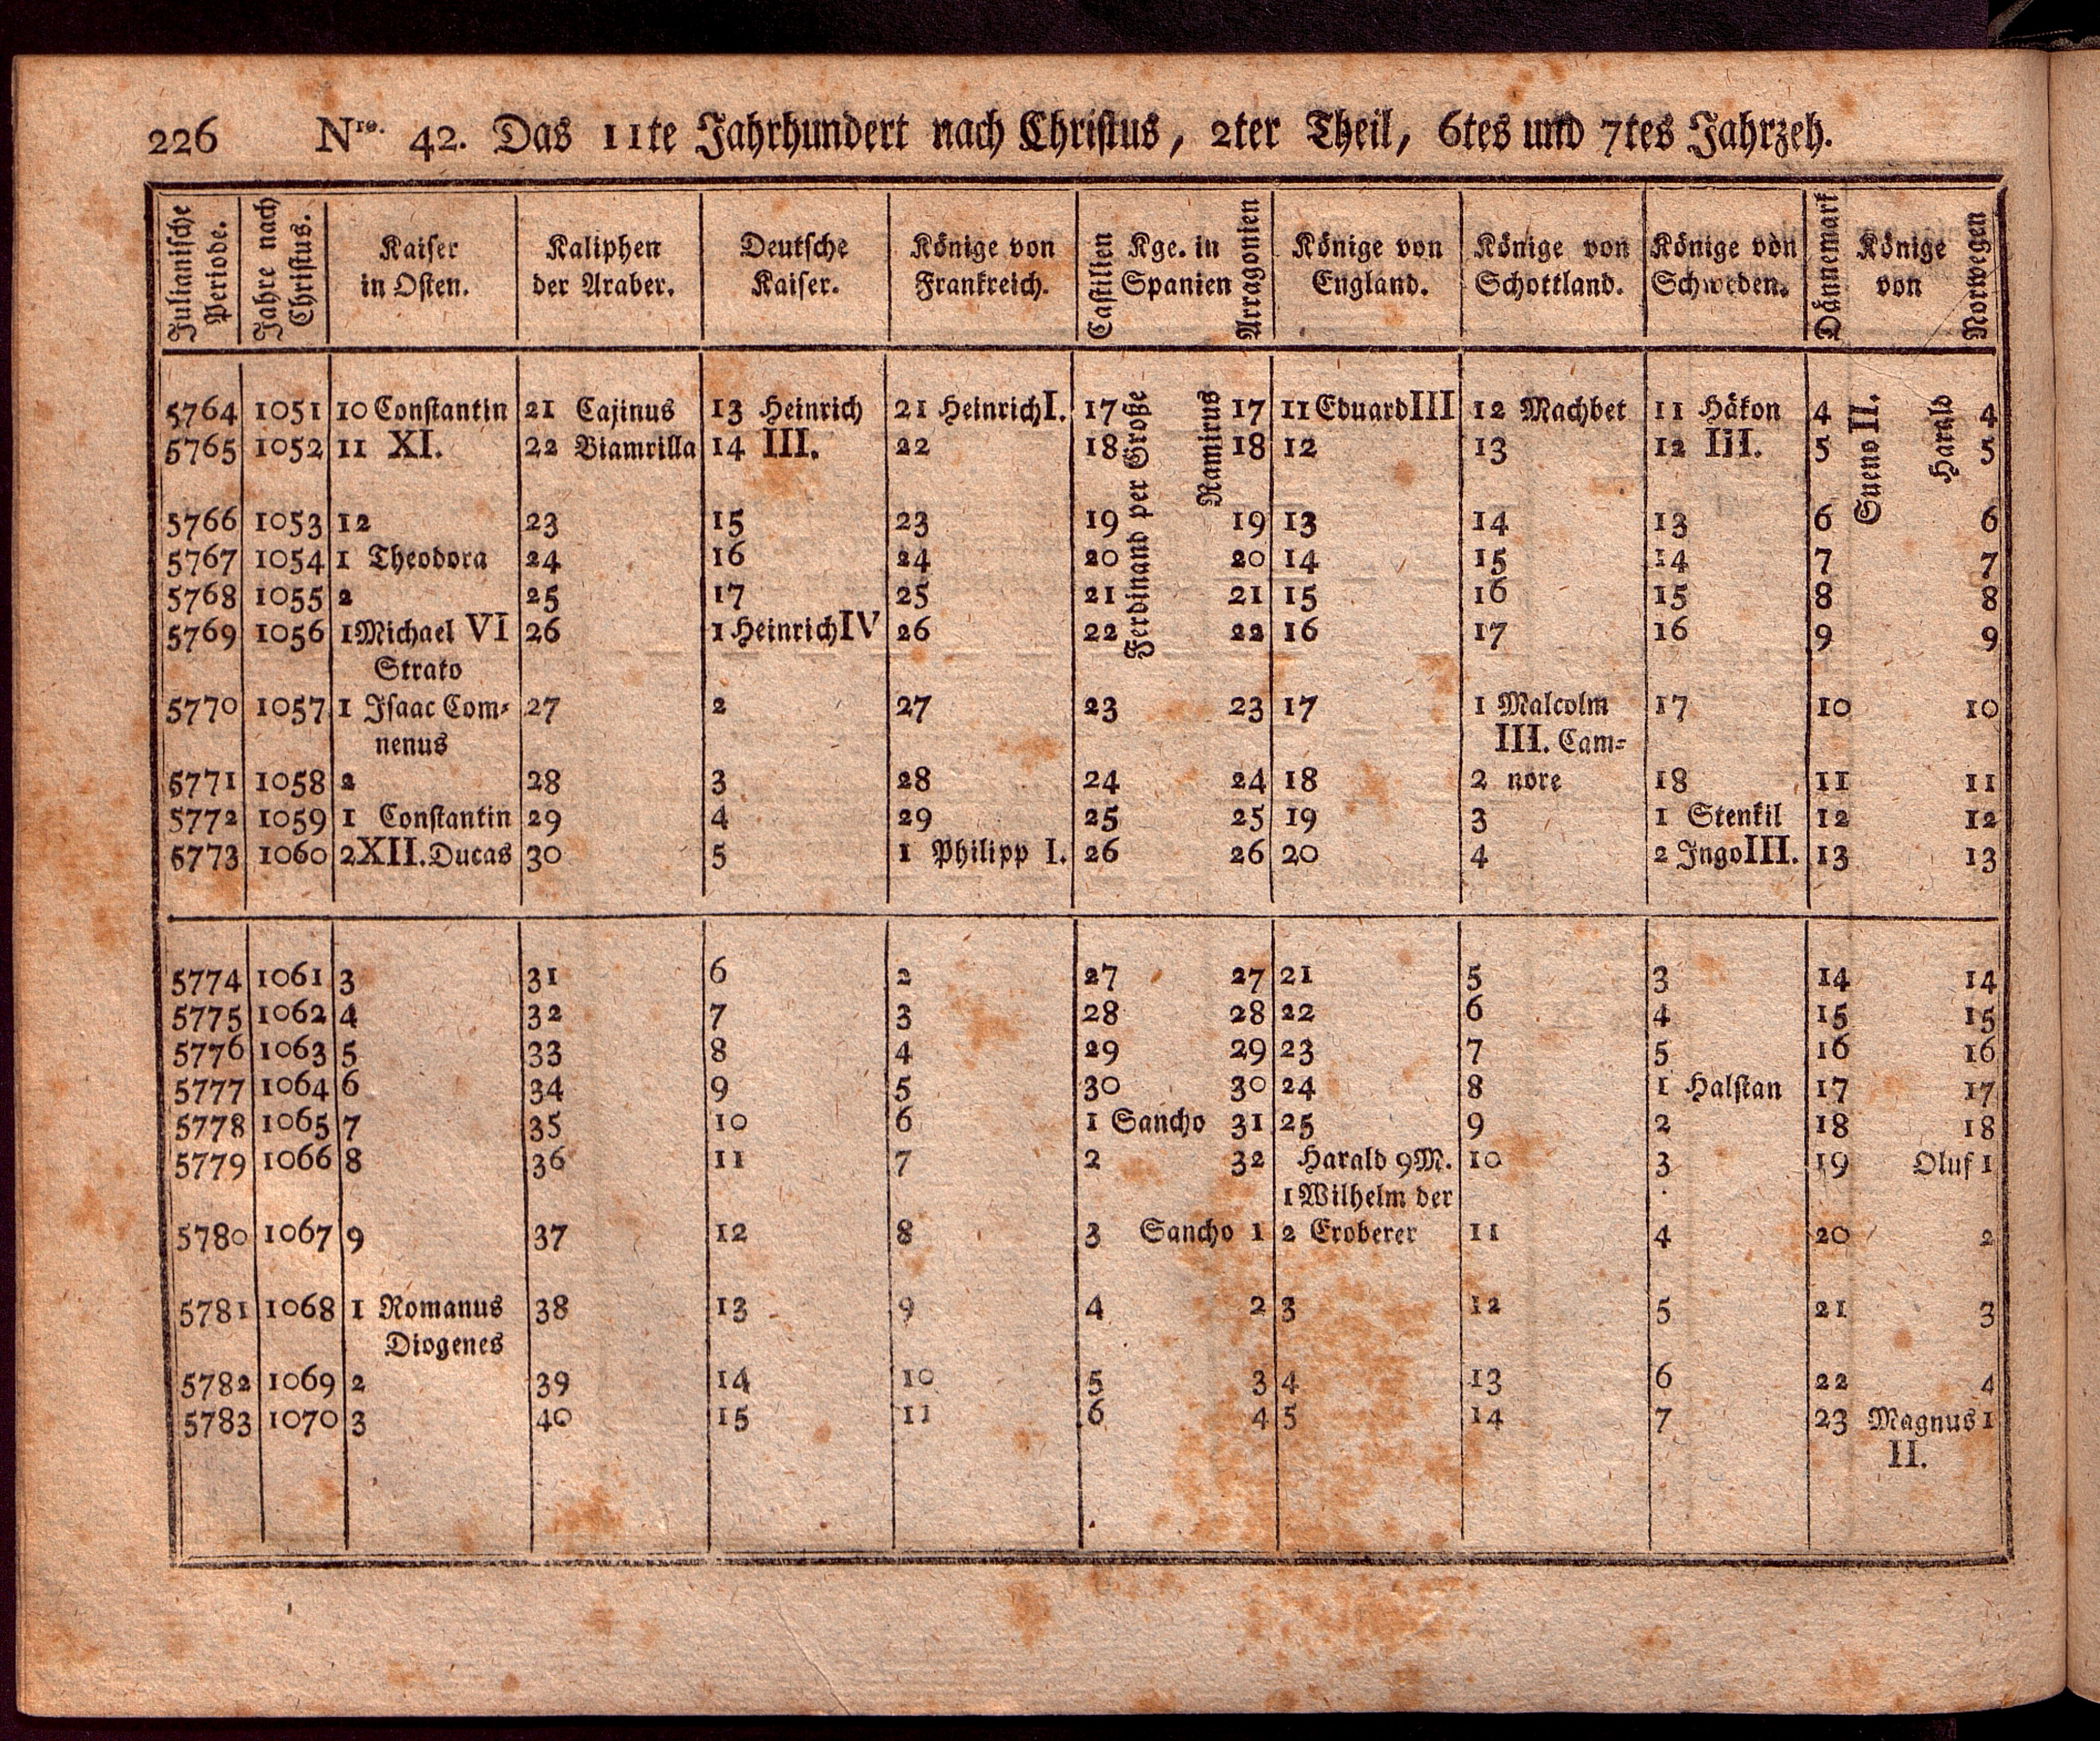 226 Nro. 42. Das 11te Jahrhundert nach Christus, 2ter Theil, 6tes und 7tes Jahrzeh.
Julianische Periode. Jahre nach Christus. Kaiser in Osten. Kaliphen der Araber. Deutsche Kaiser. Könige von Frankreich. Castilien Kge. in Spanien Arragonien Könige von England. Könige von Schottland. Könige von Schweden. Dännemark Könige von Norwegen
Ferdinand per Große
Ramirus
Sueno II.
Harald
5764 1051 10 Constantin 21 Cajinus 13 Heinrich 21 Heinrich I. 17 17 11 Eduard III 12 Machbet 11 Håkon 4 4
5765 1052 11 XI. 22 Biamrilla 14 III. 22 18 18 12 13 12 III. 5 5
5766 1053 12 23 15 23 19 19 13 14 13 6 6
5767 1054 1 Theodora 24 16 24 20 20 14 15 14 7 7
5768 1055 2 25 17 25 21 21 15 16 15 8 8
5769 1056 1 Michael VI 26 1 Heinrich IV 26 22 22 16 17 16 9 9
Strato
5770 1057 1 Isaac Com- 27 2 27 23 23 17 1 Malcolm 17 10 10
nenus III. Cam-
5771 1058 2 28 3 28 24 24 18 2 nore 18 11 11
5772 1059 1 Constantin 29 4 29 25 25 19 3 1 Stenkil 12 12
5773 1060 2 XII. Ducas 30 5 1 Philipp I. 26 26 20 4 2 Ingo III. 13 13
5774 1061 3 31 6 2 27 27 21 5 3 14 14
5775 1062 4 32 7 3 28 28 22 6 4 15 15
5776 1063 5 33 8 4 29 29 23 7 5 16 16
5777 1064 6 34 9 5 30 30 24 8 1 Halstan 17 17
5778 1065 7 35 10 6 1 Sancho 31 25 9 2 18 18
5779 1066 8 36 11 7 2 32 Harald 9 M. 10 3 19 Oluf 1
1 Wilhelm der
5780 1067 9 37 12 8 3 Sancho 1 2 Eroberer 11 4 20 2
5781 1068 1 Romanus 38 13 9 4 2 3 12 5 21 3
Diogenes
5782 1069 2 39 14 10 5 3 4 13 6 22 4
5783 1070 3 40 15 11 6 4 5 14 7 23 Magnus 1
II.